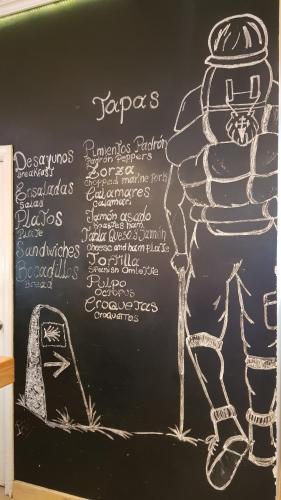 Tapas
Desayunos
Breakfast
Ensaladas
Salad
Platos
Plate
Sandwiches
Bocadillos
Bread
Pimientos Padrón
Padron Peppers
Zorza
Chopped marine Pork
Calamares
Calamari
Jamón asado
Roasted ham
Tabla Quesos, Jamón
Cheese and ham Plate
Tortilla
Spanish Omlette
Pulpo
Octopus
Croquetas
Croquettas